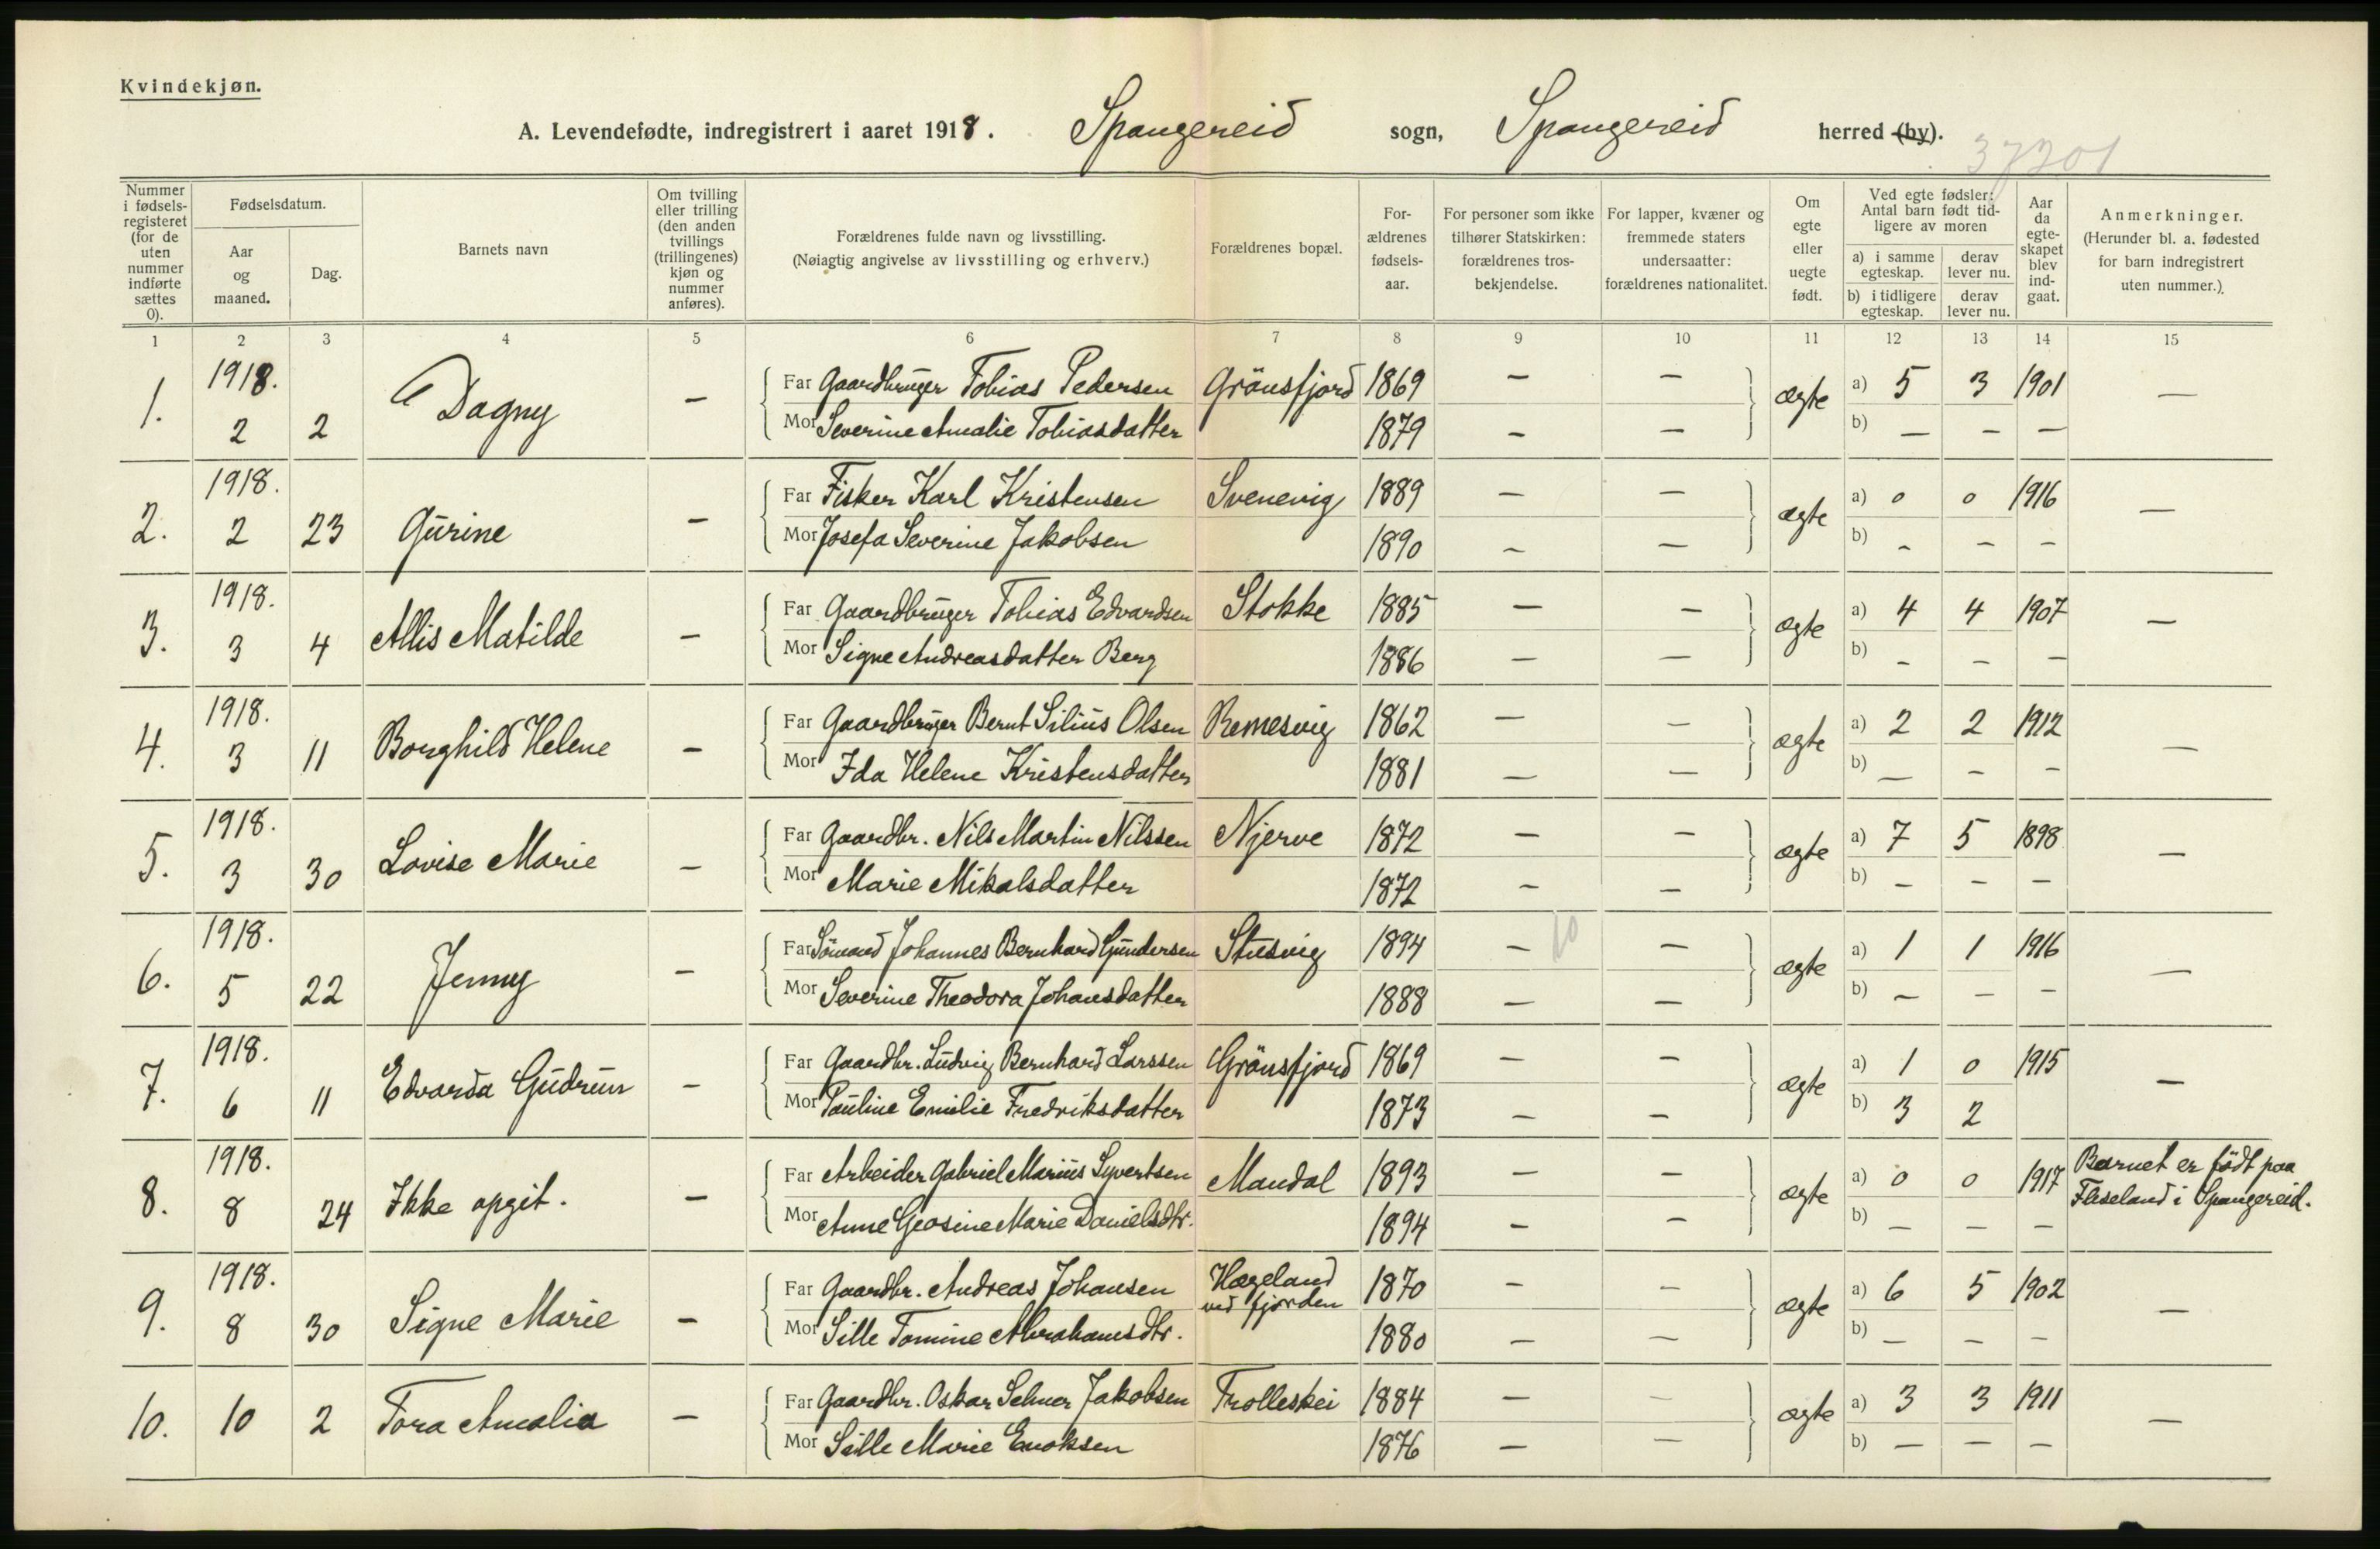 Kvindekjøn.
A. Levendefødte, indregistrert i aaret 1918. Spangereid sogn, Spangereid herred (by).
37201
Nummer i fødselsregisteret (for de uten nummer indførte sættes 0).
Fødselsdatum.
Aar og maaned.
Dag.
Barnets navn
Om tvilling eller trilling (den anden tvillings (trillingenes) kjøn og nummer anføres).
Forældrenes fulde navn og livsstilling.
(Nøiagtig angivelse av livsstilling og erhverv.)
Forældrenes bopæl.
Forældrenes fødselsaar.
For personer som ikke tilhører Statskirken: forældrenes trosbekjendelse.
For lapper, kvæner og fremmede staters undersaatter: forældrenes nationalitet.
Om egte eller uegte født.
Ved egte fødsler: Antal barn født tidligere av moren
a) i samme egteskap. derav lever nu.
b) i tidligere egteskap. derav lever nu.
Aar da egteskapet blev indgaat.
Anmerkninger.
(Herunder bl. a. fødested for barn indregistrert uten nummer.)
1 2 3 4 5 6 7 8 9 10 11 12 13 14 15
1. 1918. 2 2 Dagny — Far Gaardbruger Tobias Pedersen Grönsfjord 1869 — — ægte a) 5 3 1901 —
Mor Severine Amalie Tobiasdatter 1879 — — b) — — —
2. 1918. 2 23 Gurine — Far Fisker Karl Kristensen Svenevig 1889 — — ægte a) 0 0 1916 —
Mor Josefa Severine Jakobsen 1890 — — b) — — —
3. 1918. 3 4 Allis Matilde — Far Gaardbruger Tobias Edvardsen Stokke 1885 — — ægte a) 4 4 1907 —
Mor Signe Andreasdatter Berg 1886 — — b) — — —
4. 1918. 3 11 Borghild Helene — Far Gaardbruger Bernt Silius Olsen Remesvig 1862 — — ægte a) 2 2 1912 —
Mor Ida Helene Kristensdatter 1881 — — b) — — —
5. 1918. 3 30 Lovise Marie — Far Gaardbr. Nils Martin Nilssen Njerve 1872 — — ægte a) 7 5 1898 —
Mor Marie Mikalsdatter 1872 — — b) — — —
6. 1918. 5 22 Jenny — Far Sömand Johannes Bernhard Gundersen Stusvig 1894 — 10 — ægte a) 1 1 1916 —
Mor Severine Theodora Johansdatter 1888 — — b) — — —
7. 1918. 6 11 Edvarda Gudrun — Far Gaardbr. Ludvig Bernhard Larssen Grönsfjord 1869 — — ægte a) 1 0 1915 —
Mor Pauline Emilie Fredriksdatter 1873 — — b) 3 2
8. 1918. 8 24 Ikke opgit. — Far Arbeider Gabriel Marius Syvertsen Mandal 1893 — — ægte a) 0 0 1917 Barnet er födt paa
Mor Anne Geosine Marie Danielsdtr. 1894 — — b) — — — i Spangereid.
9. 1918. 8 30 Signe Marie — Far Gaardbr. Andreas Johansen Hægeland ved fjorden 1870 — — ægte a) 6 5 1902 —
Mor Sille Tomine Abrahamsdtr. 1880 — — b) — — —
10. 10 2 Tora Amalia — Far Gaardbr. Oskar Selmer Jakobsen Trolleskei 1884 — — ægte a) 3 3 1911 —
Mor Sille Marie Enoksen 1876 — — b) — — —